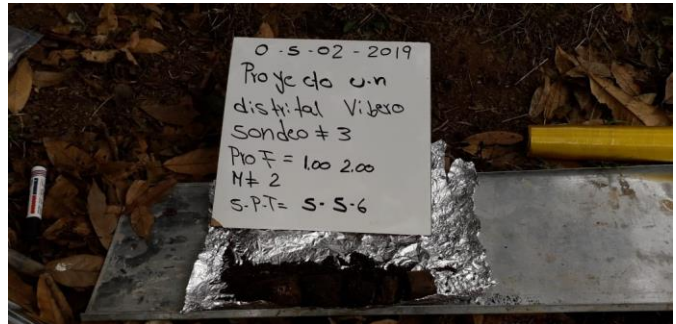 0-5-02-2019
Proyecto U.N
distrital Vivero
Sondeo # 3
Prof = 1.00 2.00
M# 2
S.P.T= 5-5-6